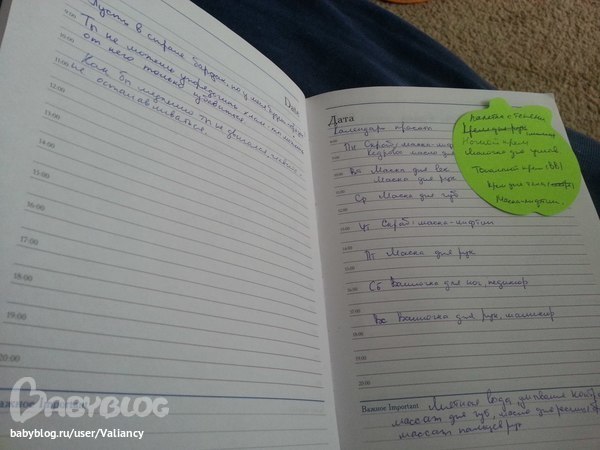 Пусть в стране бардак, но у
Ты не можешь упорядочить хаос, но можешь
от него только избавиться.
Как бы медленно ты не двигался, главное -
не останавливаться.
9:00
10:00
11:00
12:00
13:00
14:00
15:00
16:00
17:00
18:00
19:00
20:00
Важное
Дата
Календарь красоты
Пн Скраб, маска-лифтинг
Кедровое масло
Вт Маска для век
Маска для рук
Ср Маска для губ
Чт Скраб, маска-лифтинг
Пт Маска для рук
Сб Ванночка для ног, педикюр
Вс Ванночка для рук, маникюр
19:00
20:00
Важное Important
вода, умывание
массаж для губ, масло для ресниц
массаж пальцев рук
Крем для рук
Ночной крем
крем (BB)
Крем для тела
Маска-лифтинг.
BABYBLOG
babyblog.ru/user/Valiancy